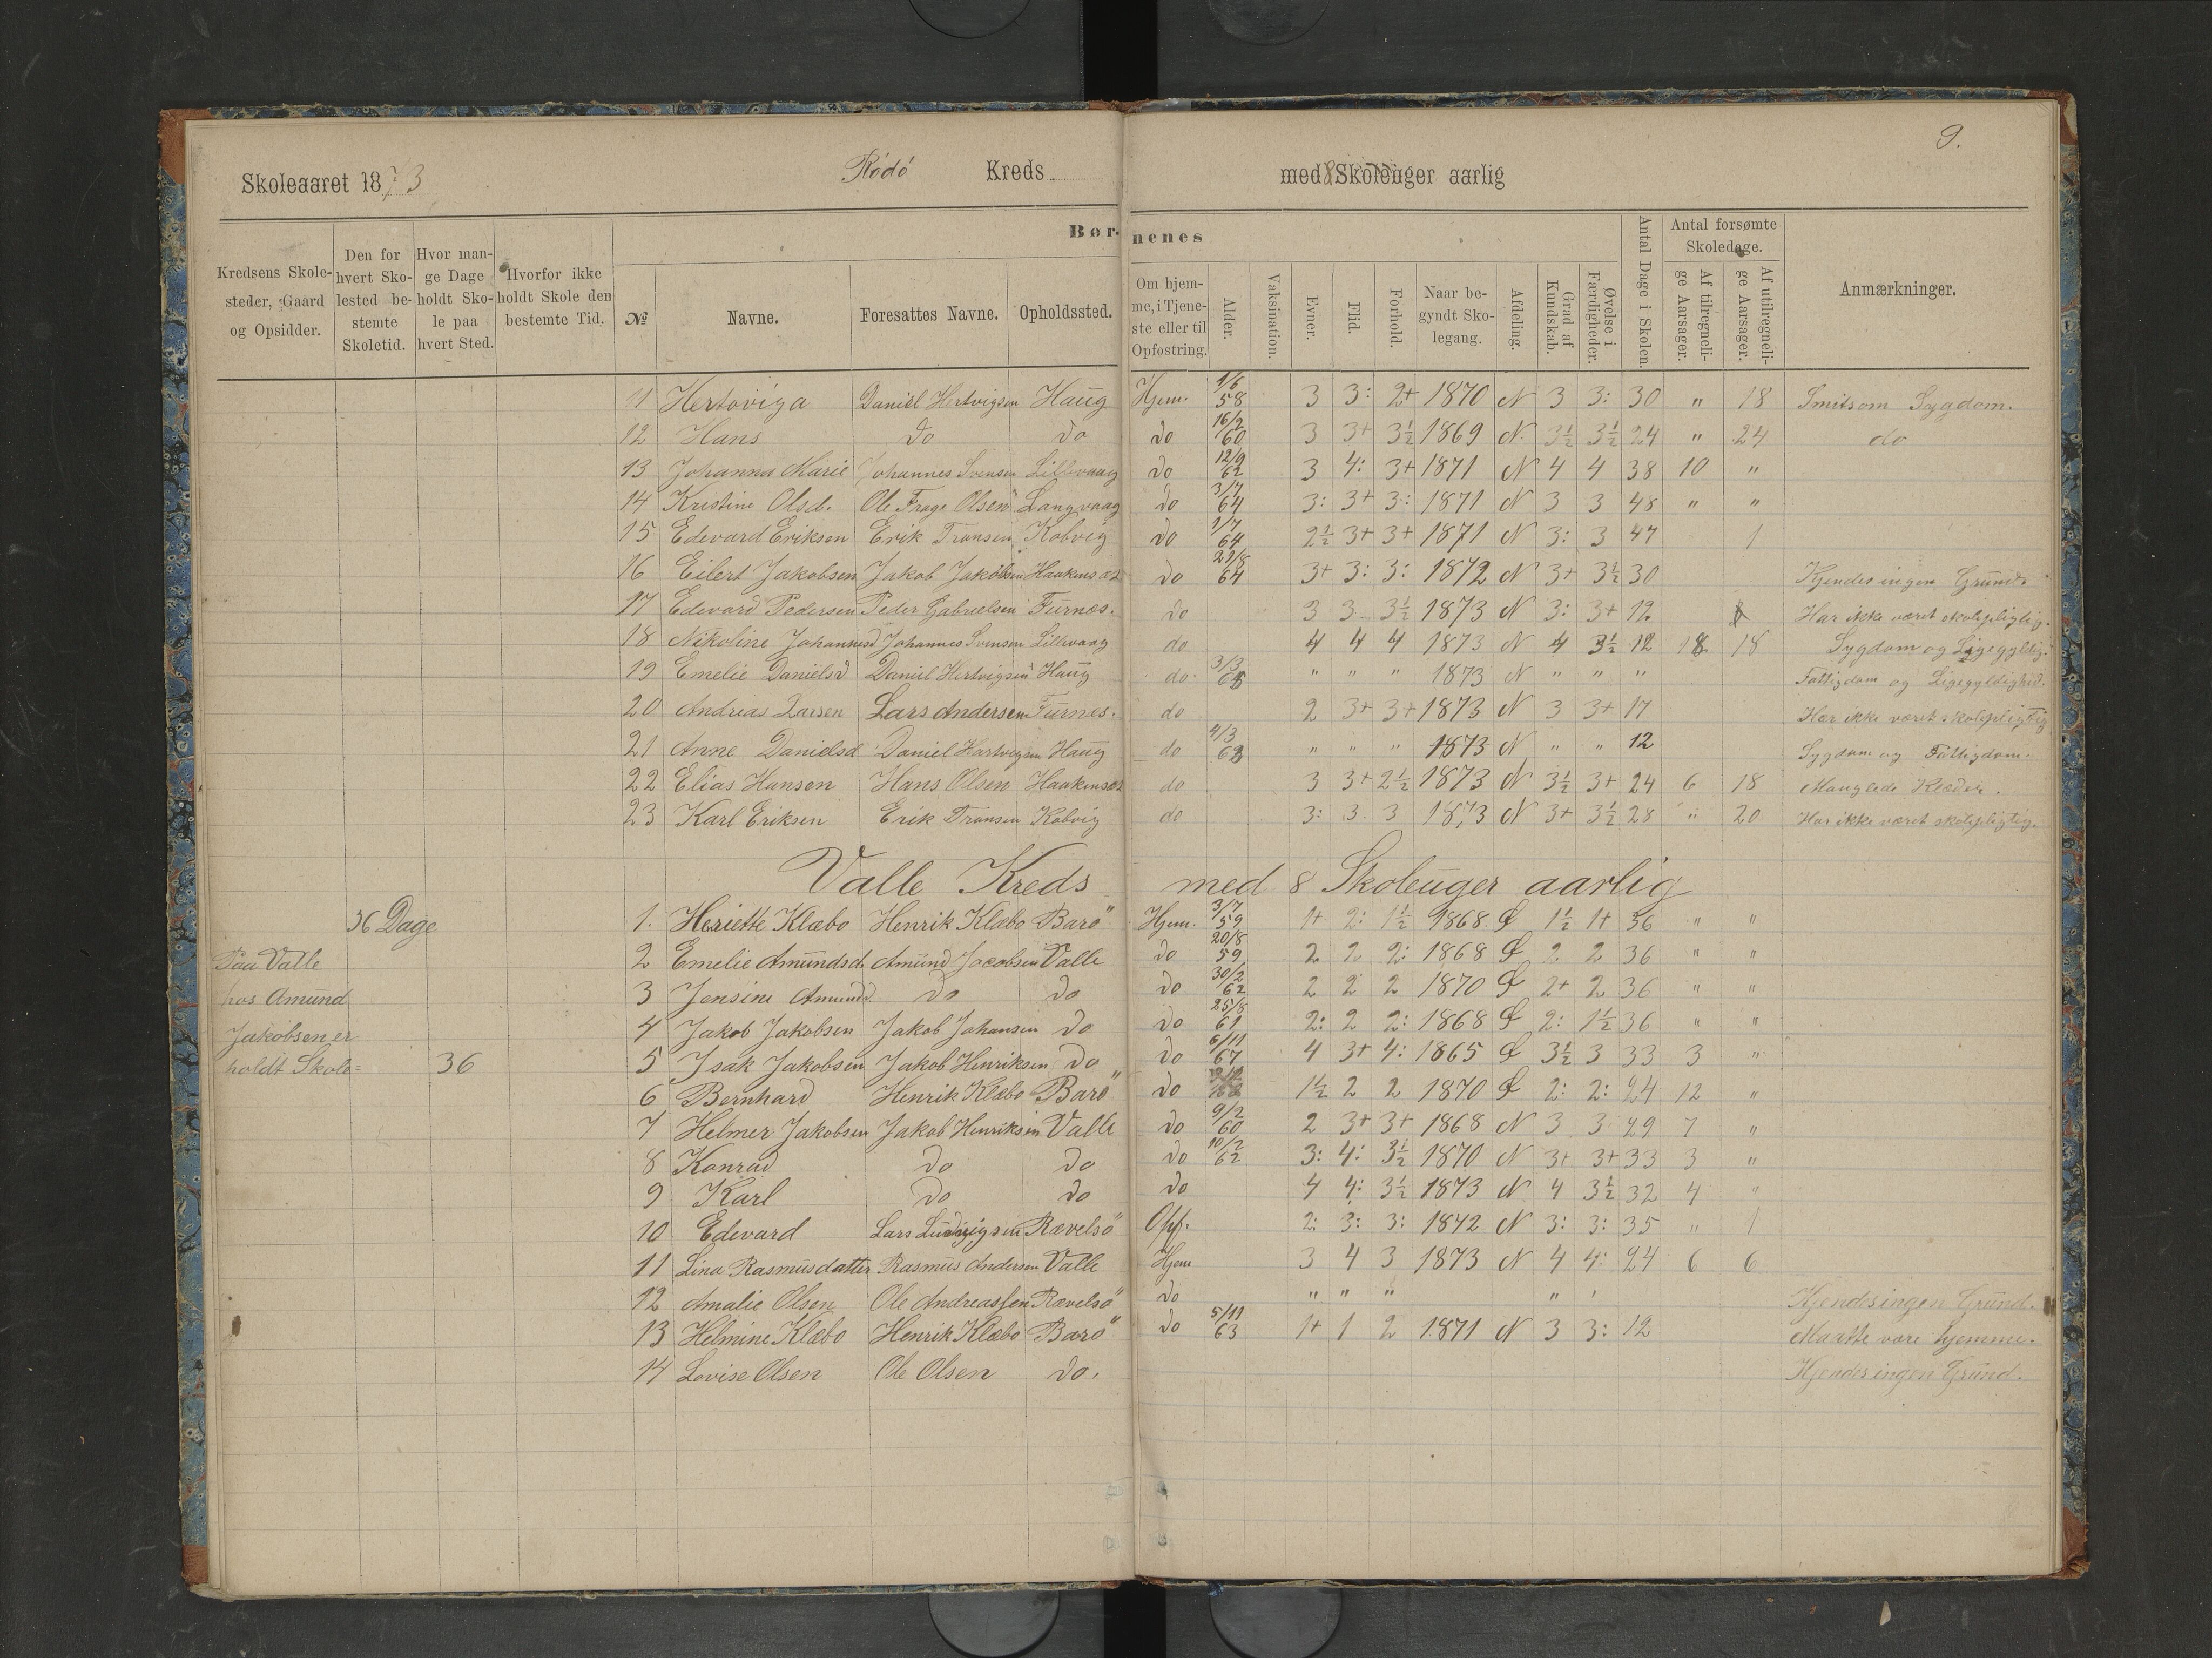 9.
Skoleaaret 1873 Rödö Kreds med 8 Skoleuger aarlig
Børnenes
Kredsens Skolesteder, Gaard og Opsidder.
Den for hvert Skolested bestemte Skoletid.
Hvor mange Dage holdt Skole paa hvert Sted.
Hvorfor ikke holdt Skole den bestemte Tid.
№
Navne.
Foresattes Navne.
Opholdssted.
Om hjemme, i Tjeneste eller til Opfostring.
Alder.
Vaksination.
Evner.
Flid.
Forhold.
Naar begyndt Skolegang.
Afdeling.
Grad af Kundskab.
Øvelse i Færdigheder.
Antal Dage i Skolen.
Antal forsømte Skoledage.
Af tilregnelige Aarsager.
Af utilregnelige Aarsager.
Anmærkninger.
11 Hertoviga Daniel Hertvigsen Haug Hjem. 1/6 58 3 3: 2+ 1870 N 3 3: 30 " 18 Smitsom Sygdom.
12 Hans do do do 16/2 60 3 3+ 3½ 1869 N. 3½ 3½ 24 " 24 do
13 Johanna Marie Johannes Svensen Lillevaag do 12/9 62 3 4: 3+ 1871 N 4 4 38 10 "
14 Kristine Olsd. Ole Frage Olsen Langvaag do 3/7 64 3: 3+ 3: 1871 N 3 3 48 " "
15 Edevard Eriksen Erik Tronsen Kobvig do 1/7 64 2½ 3+ 3+ 1871 N 3: 3 47 1
16 Eilert Jakobsen Jakob Jakobsen Haakensæt do 29/8 64 3+ 3: 3: 1872 N 3+ 3½ 30 Kjendes ingen Grund.
17 Edevard Pedersen Peder Gabrielsen Furnes. do 3 3 3½ 1873 N 3: 3+ 12 Har ikke været skolepligtig.
18 Nikoline Johannesd Johannes Svensen Lillevaag do 4 4 4 1873 N 4 3½ 12 18 18 Sygdom og Ligegyldig.
19 Emelie Danielsd Daniel Hertvigsen Haug do. 3/3 " " " 1873 N " " " Fattigdom og Ligegyldighed.
20 Andreas Larsen Lars Andersen Furnes. do 2 3+ 3+ 1873 N 3 3+ 17 Har ikke været skolepligtig
21 Anne Danielsd Daniel Hartvigsen Haug do 4/3 " " " 1873 N " " 12 Sygdom og Fattigdom.
22 Elias Hansen Hans Olsen Haakensæt do 3 3+ 2½ 1873 N 3½ 3+ 24 6 18 Manglede Klæder.
23 Karl Eriksen Erik Tronsen Kobvig do 3: 3 3 1873 N 3+ 3½ 28 " 20 Har ikke været skolepligtig.
Valle Kreds med 8 Skoleuger aarlig
36 Dage 1. Heriette Klæbo Henrik Klæbo Barö Hjem. 3/7 59 1+ 2: 1½ 1868 Ø 1½ 1+ 36 " "
Paa Valle 2 Emelie Amundsd. Amund Jacobsen Valle do 20/8 59 2 2 2: 1868 Ø 2 2 36 " "
hos Amund 3 Jensine Amundsd do do do 30/2 62 2 2 2 1870 Ø 2+ 2 36 " "
Jakobsen er 4 Jakob Jakobsen Jakob Johansen do do 25/8 61 2: 2 2: 1868 Ø 2: 1½ 36 " "
holdt Skole= 36 5 Isak Jakobsen Jakob Henriksen do do 6/11 67 4 3+ 4: 1865 Ø 3½ 3 33 3 "
6 Bernhard Henrik Klæbo Barö do 1½ 2 2 1870 Ø 2: 2: 24 12 "
7 Helmer Jakobsen Jakob Henriksen Valle do 9/2 60 2 3+ 3+ 1868 N 3 3 29 7 "
8 Konrad do do do 10/2 62 3: 4: 3½ 1870 N 3+ 3+ 33 3 "
9 Karl do do do 4 4: 3½ 1873 N 4 3½ 32 4 "
10 Edevard Lars Ludvigsen Rævelsö Opf. 2: 3: 3: 1872 N 3: 3: 35 " 1
11 Lina Rasmusdatter Rasmus Andersen Valle Hjem 3 4 3 1873 N 4 4: 24 6 6
12 Amalie Olsen Ole Andreassen Rævelsö do " " " " ' Kjendes ingen Grund.
13 Helmine Klæbo Henrik Klæbo Barö do 5/11 63 1+ 1 2 1871 N 3 3: 12 Maatte være hjemme.
14 Lovise Olsen Ole Olsen do. Kjendes ingen Grund.